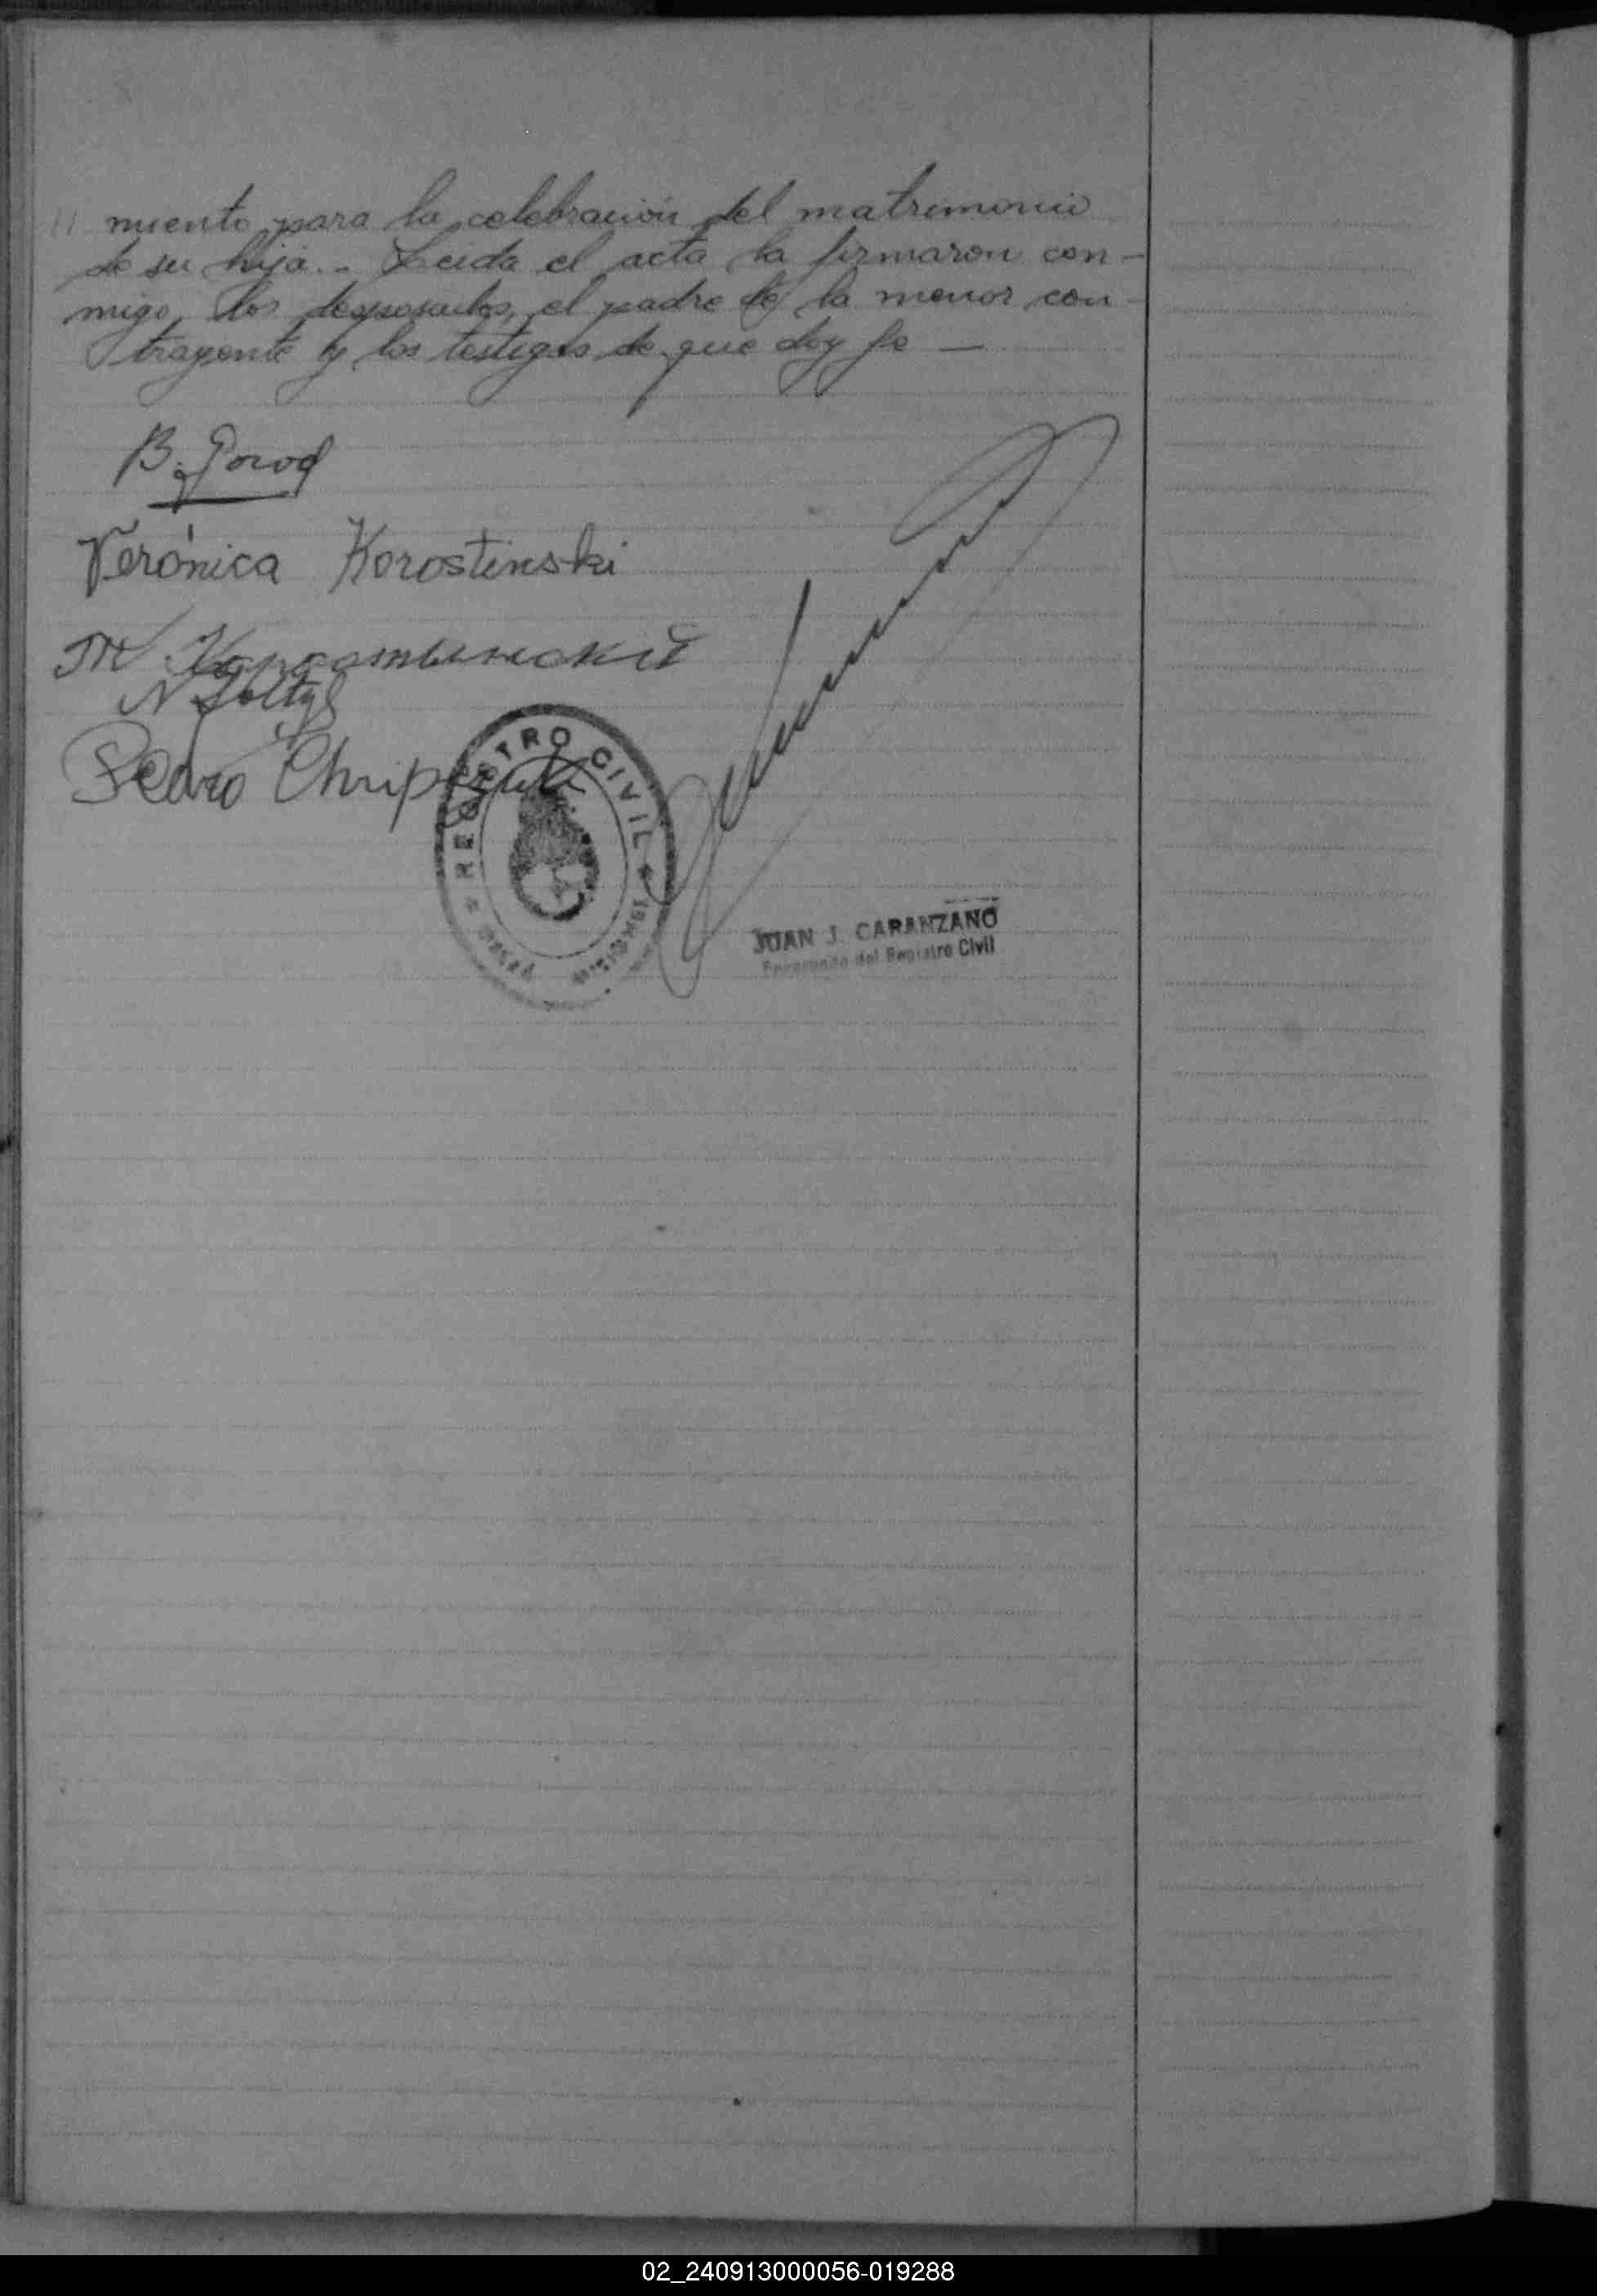 // miento para la celebración del matrimonio
de su hija.- Leida el acta la firmaron con-
migo, los desposados, el padre de la menor con-
trayente y los testigos de que doy fe —
B.
Verónica Korostinski
Коростинский
Pedro
REGISTRO CIVIL
MISIONES
JUAN J. CARANZANO
Encargado del Registro Civil
02_240913000056-019288